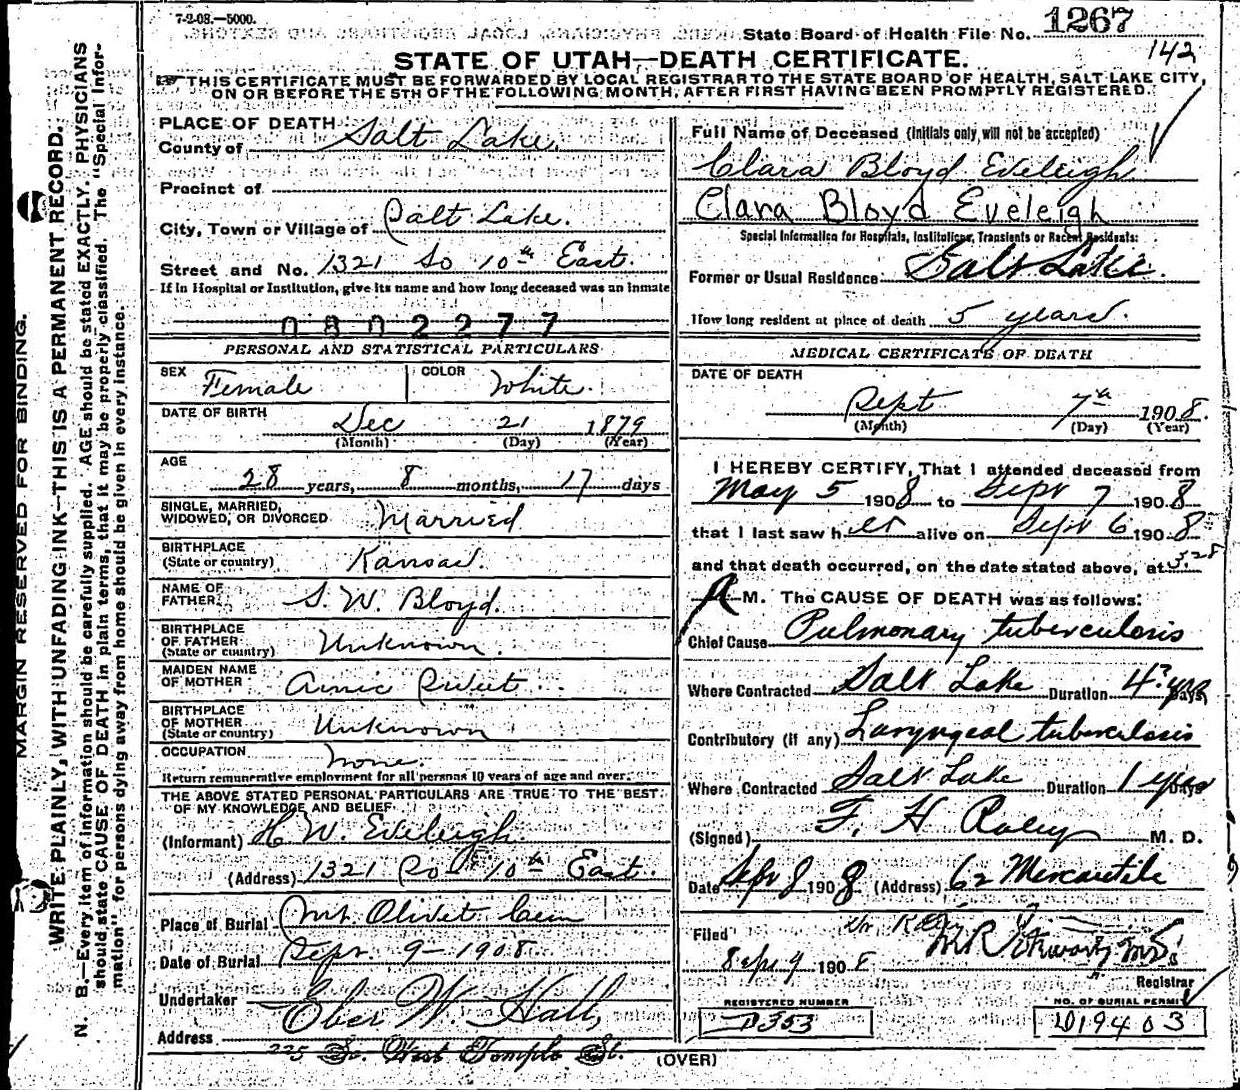 7-2-08.—5000.
State Board of Health File No. 1267
142
STATE OF UTAH—DEATH CERTIFICATE.
THIS CERTIFICATE MUST BE FORWARDED BY LOCAL REGISTRAR TO THE STATE BOARD OF HEALTH, SALT LAKE CITY,
ON OR BEFORE THE 5TH OF THE FOLLOWING MONTH, AFTER FIRST HAVING BEEN PROMPTLY REGISTERED.
MARGIN RESERVED FOR BINDING.
WRITE PLAINLY, WITH UNFADING INK—THIS IS A PERMANENT RECORD.
N. B.—Every item of information should be carefully supplied. AGE should be stated EXACTLY. PHYSICIANS
should state CAUSE OF DEATH in plain terms, that it may be properly classified. The "Special Infor-
mation" for persons dying away from home should be given in every instance.
PLACE OF DEATH
County of Salt Lake.
Precinct of
City, Town or Village of Salt Lake.
Street and No. 1321 So 10th East.
If in Hospital or Institution, give its name and how long deceased was an inmate
0802277
PERSONAL AND STATISTICAL PARTICULARS
SEX Female COLOR White.
DATE OF BIRTH Dec 21 1879
(Month) (Day) (Year)
AGE
28 years, 8 months, 17 days
SINGLE, MARRIED,
WIDOWED, OR DIVORCED Married
BIRTHPLACE
(State or country) Kansas.
NAME OF
FATHER S. W. Bloyd.
BIRTHPLACE
OF FATHER
(State or country) Unknown.
MAIDEN NAME
OF MOTHER
BIRTHPLACE
OF MOTHER
(State or country) Unknown
OCCUPATION none.
Return remunerative employment for all persons 10 years of age and over.
THE ABOVE STATED PERSONAL PARTICULARS ARE TRUE TO THE BEST
OF MY KNOWLEDGE AND BELIEF
(Informant) H W. Eveleigh.
(Address) 1321 So 10th East.
Place of Burial Mt. Olivet Cem
Date of Burial Sept. 9-1908
Undertaker Eber W. Hall,
Address 225 So. West Temple St.
(OVER)
Full Name of Deceased (Initials only will not be accepted)
Clara Bloyd Eveleigh
Clara Bloyd Eveleigh
Special Information for Hospitals, Institutions, Transients or Recent Residents:
Former or Usual Residence Salt Lake.
How long resident at place of death 5 years.
MEDICAL CERTIFICATE OF DEATH
DATE OF DEATH
Sept 7th 1908.
(Month) (Day) (Year)
I HEREBY CERTIFY, That I attended deceased from
May 5 1908 to Sept 7 1908
that I last saw her alive on Sept 6 1908
and that death occurred, on the date stated above, at 5.28
A M. The CAUSE OF DEATH was as follows:
Chief Cause Pulmonary tuberculosis
Where Contracted Salt Lake Duration 4? yrs
Contributory (if any) Laryngeal tuberculosis
Where Contracted Salt Lake Duration 1 year
(Signed) F. H Raley M. D.
Date Sept 8 1908 (Address) 62 Mercantile
Filed
Sept 9 1908
Registrar
REGISTERED NUMBER
D353
NO. OF BURIAL PERMIT
D19403